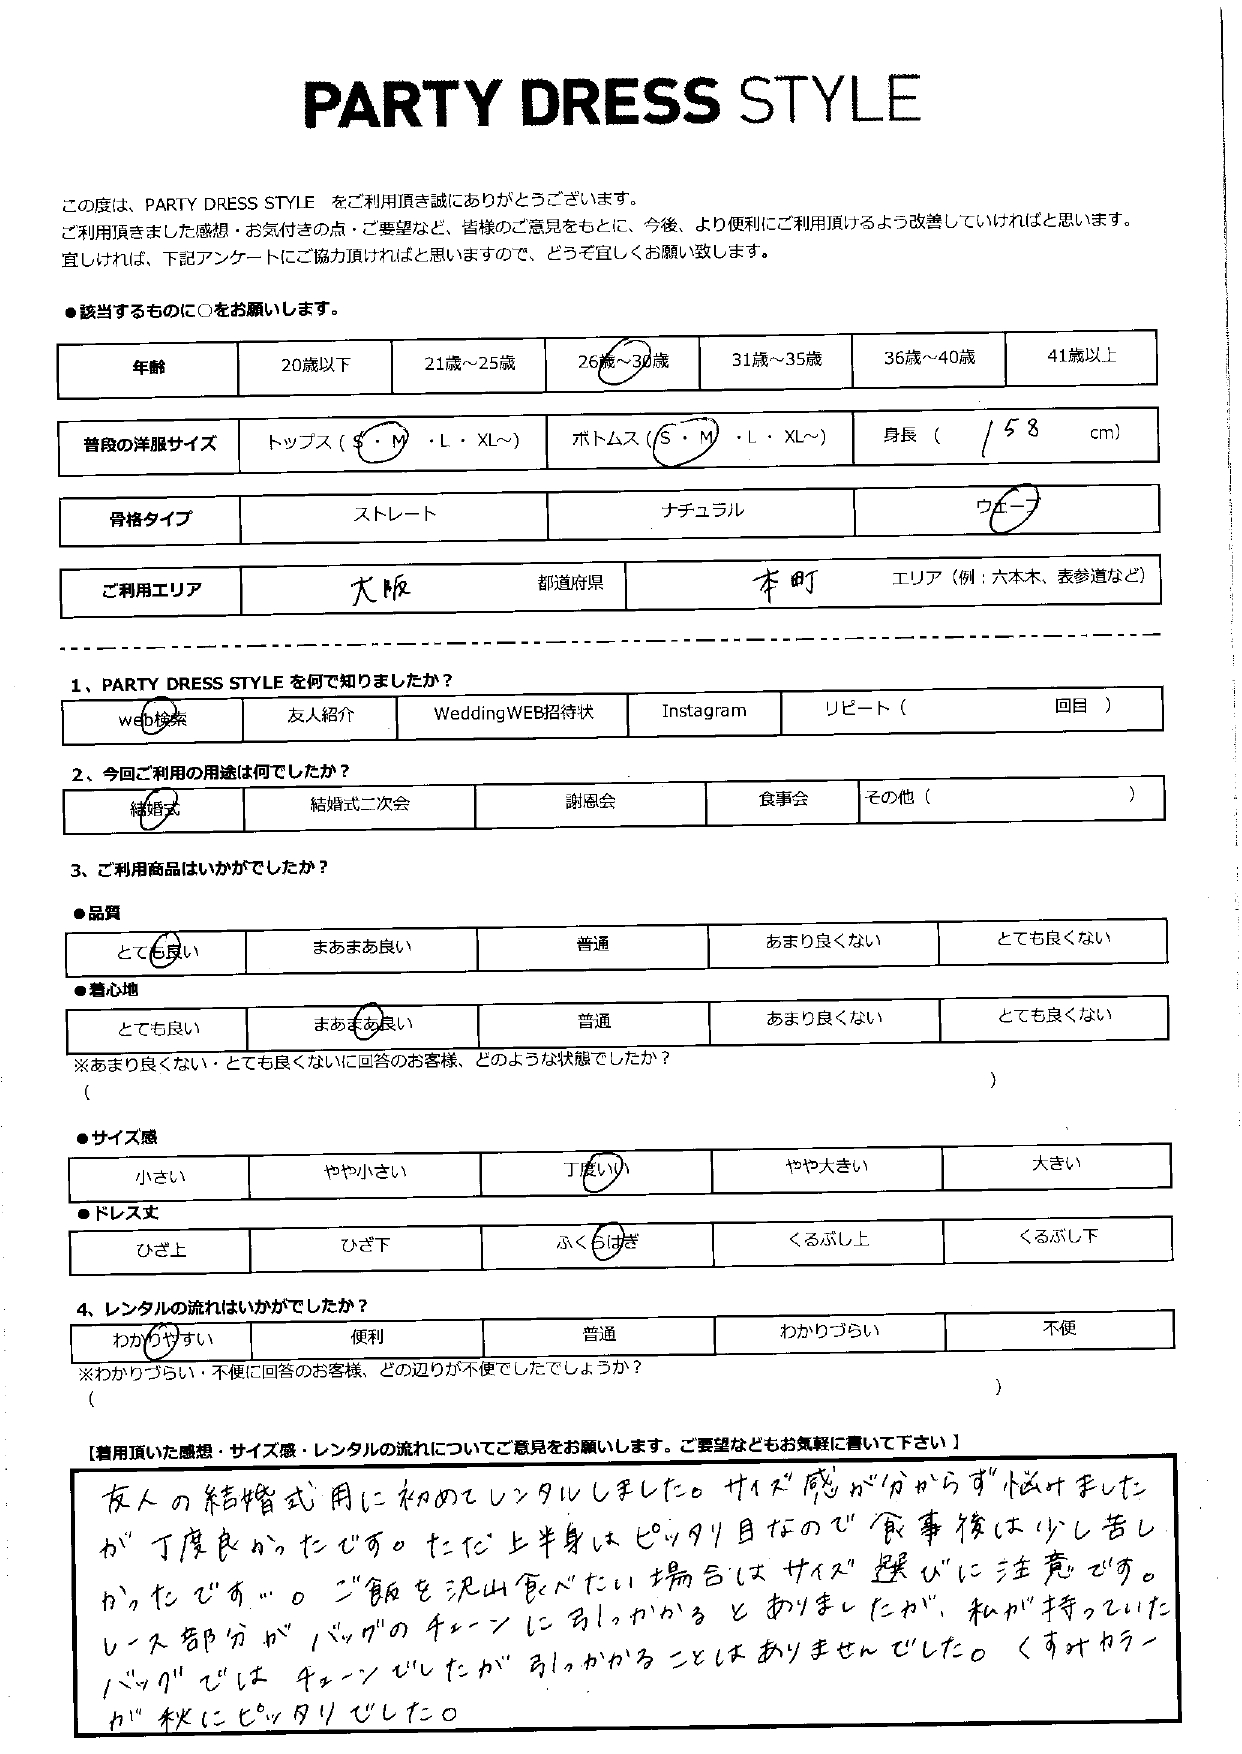 PARTY DRESS STYLE
この度は、PARTY DRESS STYLE をご利用頂き誠にありがとうございます。
ご利用頂きました感想・お気付きの点・ご要望など、皆様のご意見をもとに、今後、より便利にご利用頂けるよう改善していければと思います。
宜しければ、下記アンケートにご協力頂ければと思いますので、どうぞ宜しくお願い致します。
●該当するものに○をお願いします。
年齢 20歳以下 21歳～25歳 26歳～30歳 31歳～35歳 36歳～40歳 41歳以上
普段の洋服サイズ トップス（ S ・ M ・ L ・ XL～） ボトムス（ S ・ M ・ L ・ XL～） 身長 （ 158 cm）
骨格タイプ ストレート ナチュラル ウェーブ
ご利用エリア 大阪 都道府県 本町 エリア（例：六本木、表参道など）
1、PARTY DRESS STYLE を何で知りましたか？
web検索 友人紹介 WeddingWEB招待状 Instagram リピート（ 回目 ）
2、今回ご利用の用途は何でしたか？
結婚式 結婚式二次会 謝恩会 食事会 その他（ ）
3、ご利用商品はいかがでしたか？
●品質
とても良い まあまあ良い 普通 あまり良くない とても良くない
●着心地
とても良い まあまあ良い 普通 あまり良くない とても良くない
※あまり良くない・とても良くないに回答のお客様、どのような状態でしたか？
（ ）
●サイズ感
小さい やや小さい 丁度いい やや大きい 大きい
●ドレス丈
ひざ上 ひざ下 ふくらはぎ くるぶし上 くるぶし下
4、レンタルの流れはいかがでしたか？
わかりやすい 便利 普通 わかりづらい 不便
※わかりづらい・不便に回答のお客様、どの辺りが不便でしたでしょうか？
（ ）
【着用頂いた感想・サイズ感・レンタルの流れについてご意見をお願いします。ご要望などもお気軽に書いて下さい 】
友人の結婚式用に初めてレンタルしました。サイズ感が分からず悩みました
が丁度良かったです。ただ上半身はピッタリ目なので食事後は少し苦し
かったです…。ご飯を沢山食べたい場合はサイズ選びに注意です。
レース部分がバッグのチェーンに引っかかるとありましたが、私が持っていた
バッグではチェーンでしたが引っかかることはありませんでした。くすみカラー
が秋にピッタリでした。